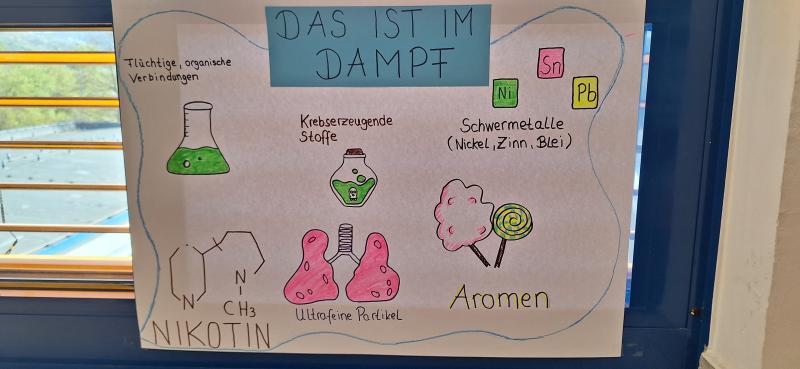 DAS IST IM
DAMPF
Flüchtige, organische
Verbindungen
Krebserzeugende
Stoffe
Ni
Sn
Pb
Schwermetalle
(Nickel, Zinn, Blei)
N
N
CH3
NIKOTIN
Ultrafeine Partikel
Aromen